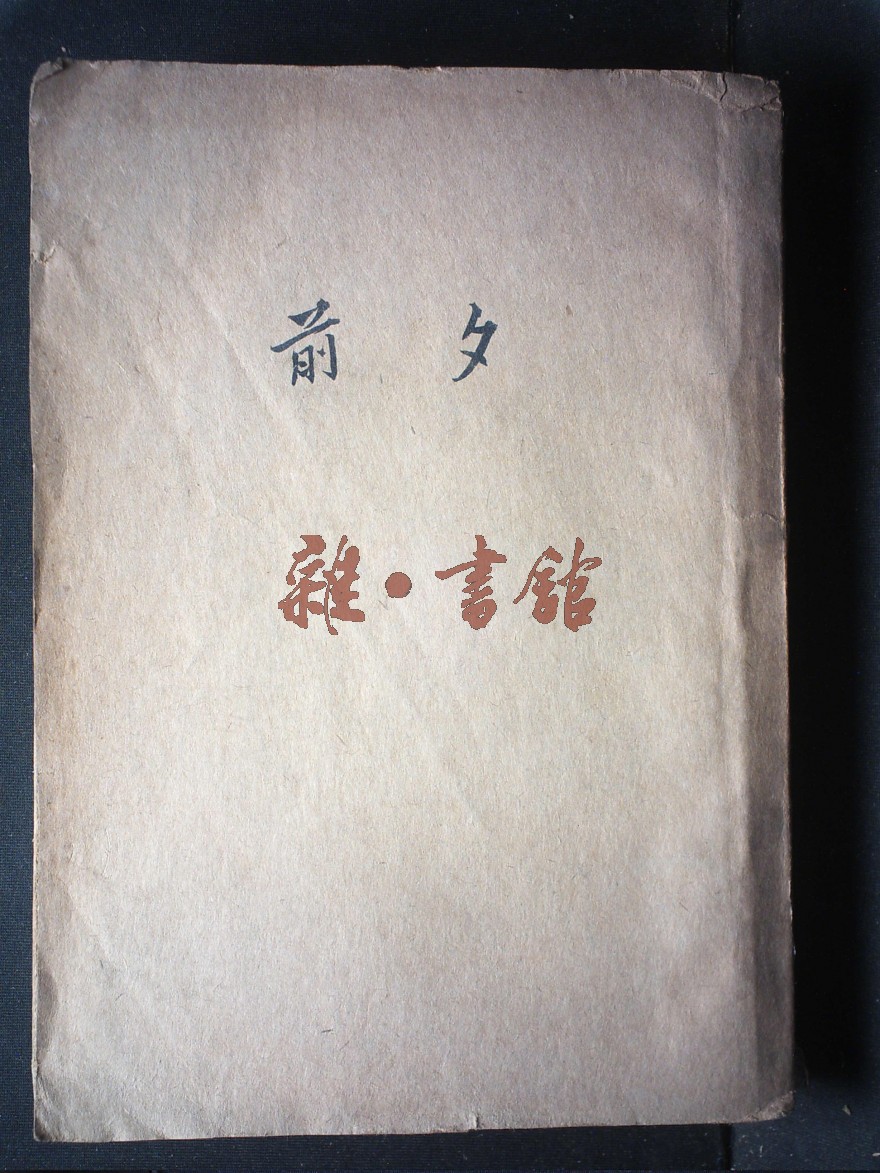 前夕
雜·書館